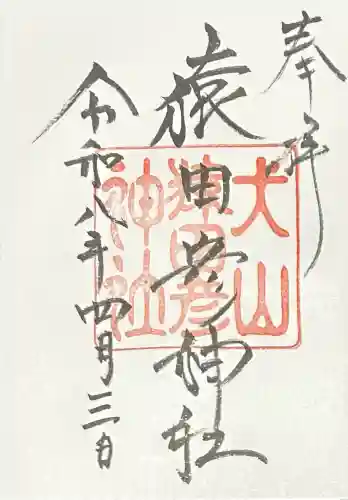 奉拝
猿田彦神社
犬山
猿田彦
神社
令和八年四月三日